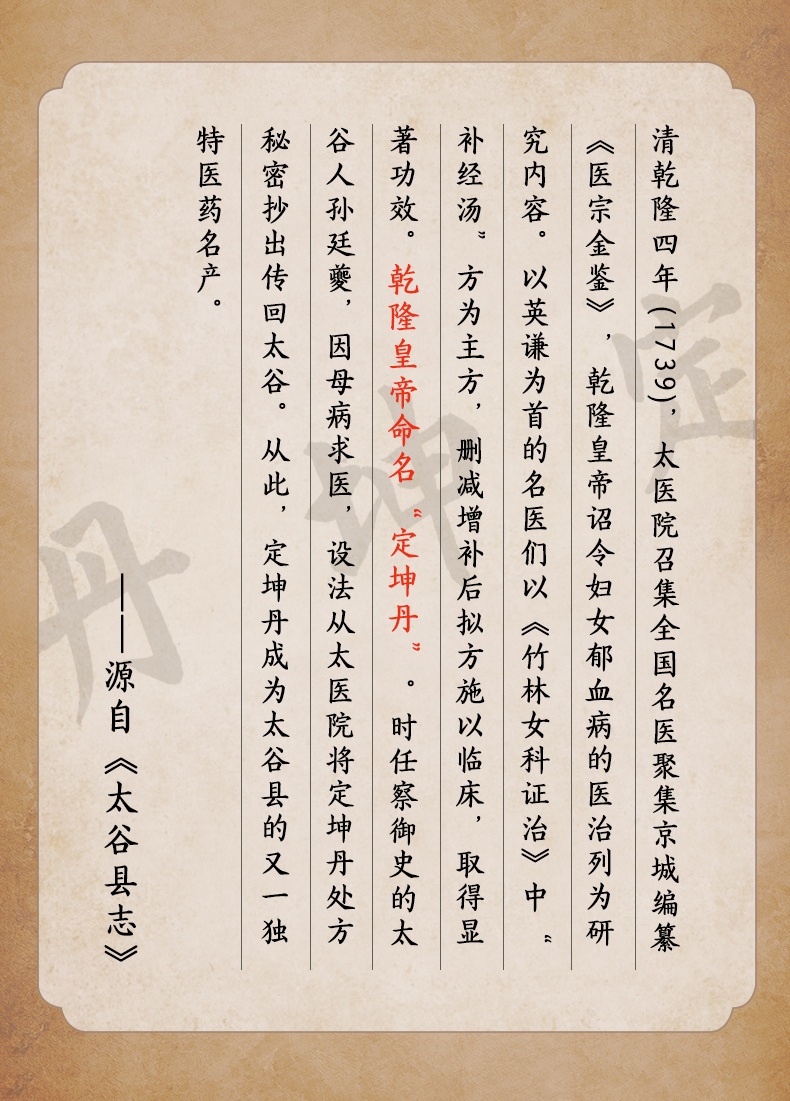 清乾隆四年(1739)，太医院召集全国名医聚集京城编纂
《医宗金鉴》，乾隆皇帝诏令妇女郁血病的医治列为研
究内容。以英谦为首的名医们以《竹林女科证治》中“
补经汤”方为主方，删减增补后拟方施以临床，取得显
著功效。乾隆皇帝命名“定坤丹”。时任察御史的太
谷人孙廷夔，因母病求医，设法从太医院将定坤丹处方
秘密抄出传回太谷。从此，定坤丹成为太谷县的又一独
特医药名产。
——源自《太谷县志》
定坤丹